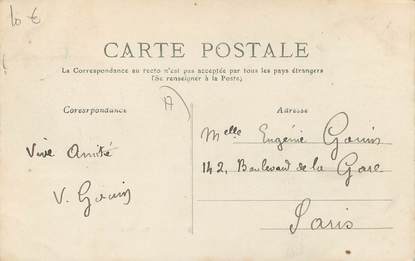 10 €
CARTE POSTALE
La Correspondance au recto n'est pas acceptée par tous les pays étrangers
(Se renseigner à la Poste)
Correspondance
Adresse
Vive Amitié
V. Gouin
Melle Eugénie Gouin
142, Boulevard de la Gare
Paris